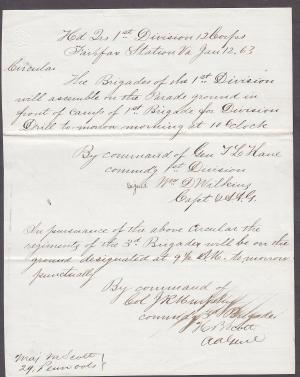 Hd Qrs 1st Division 12 Corps
Fairfax Station Va Jan 12. 63
Circular
The Brigades of the 1st Division
will assemble on the Parade ground in
front of camp of 1st Brigade for Division
Drill to morrow morning at 10 oclock
By command of Gen T L Kane
commdg 1st Division
signed Wm D Wilkins
Capt & AAG
In pursuance of the above circular the
regiments of the 3d Brigade will be on the
ground designated at 9½ A.M. to morrow
punctually
By command of
Col J R Murphy
commdg 3d Brigade
H B Scott
Maj M Scott
29, Penn vols